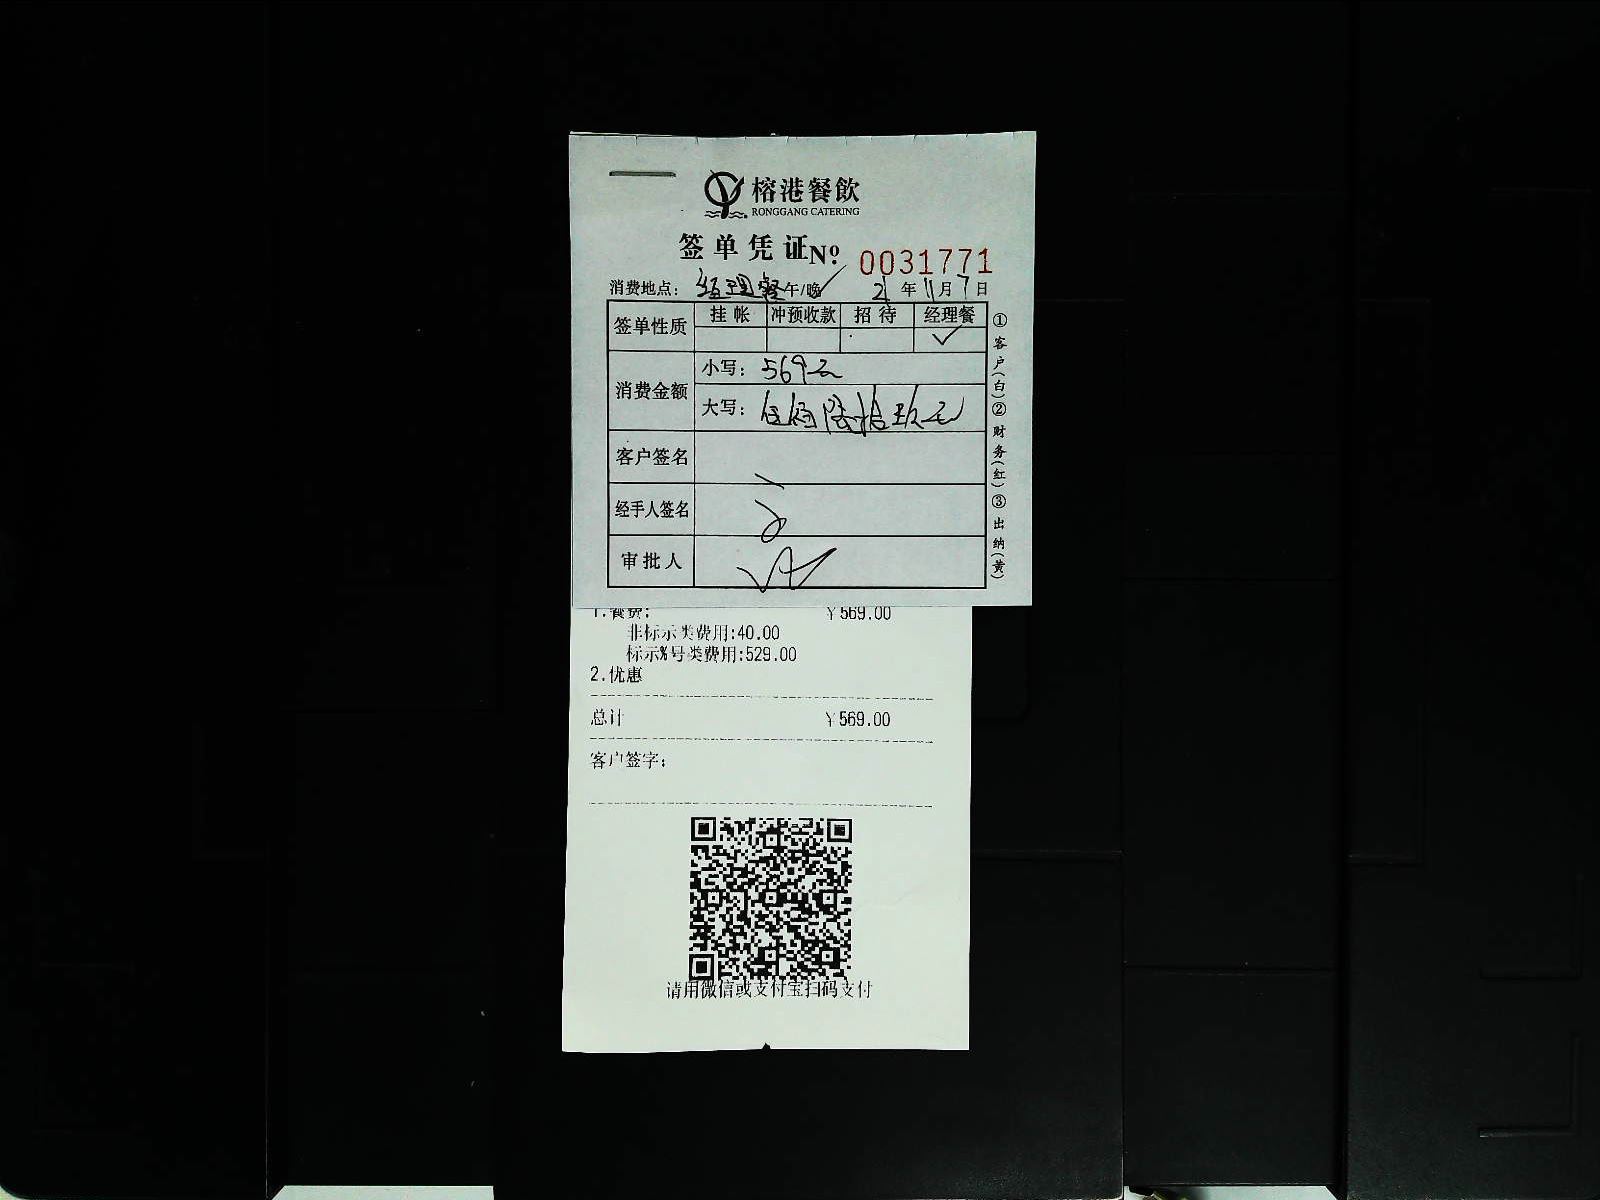 榕港餐飲
RONGGANG CATERING
签单凭证 Nº 0031771
消费地点: 经理餐 午/晚 21 年 11 月 7 日
签单性质 挂帐 冲预收款 招待 经理餐
✓
消费金额 小写: 569元
大写: 伍佰陆拾玖元
客户签名
经手人签名
审批人
①客户(白)②财务(红)③出纳(黄)
1.餐费: ¥569.00
非标示类费用:40.00
标示%号类费用:529.00
2.优惠
总计 ¥569.00
客户签字:
请用微信或支付宝扫码支付